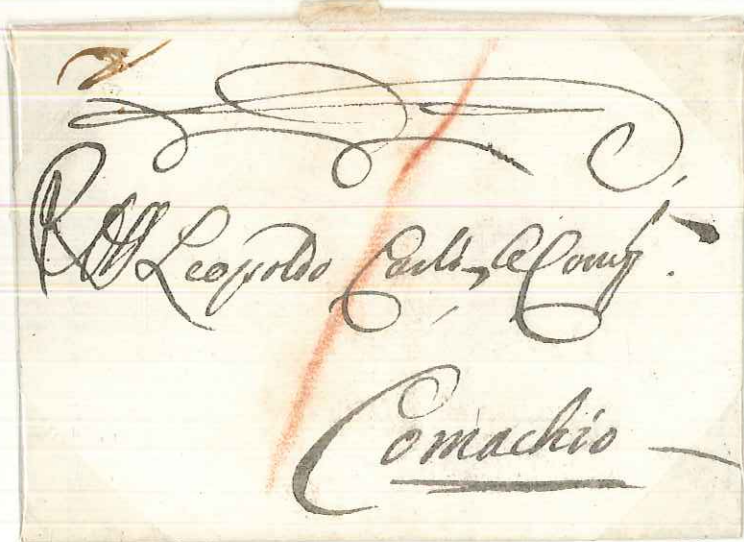 Leopoldo Carli, e Comp.
Comachio